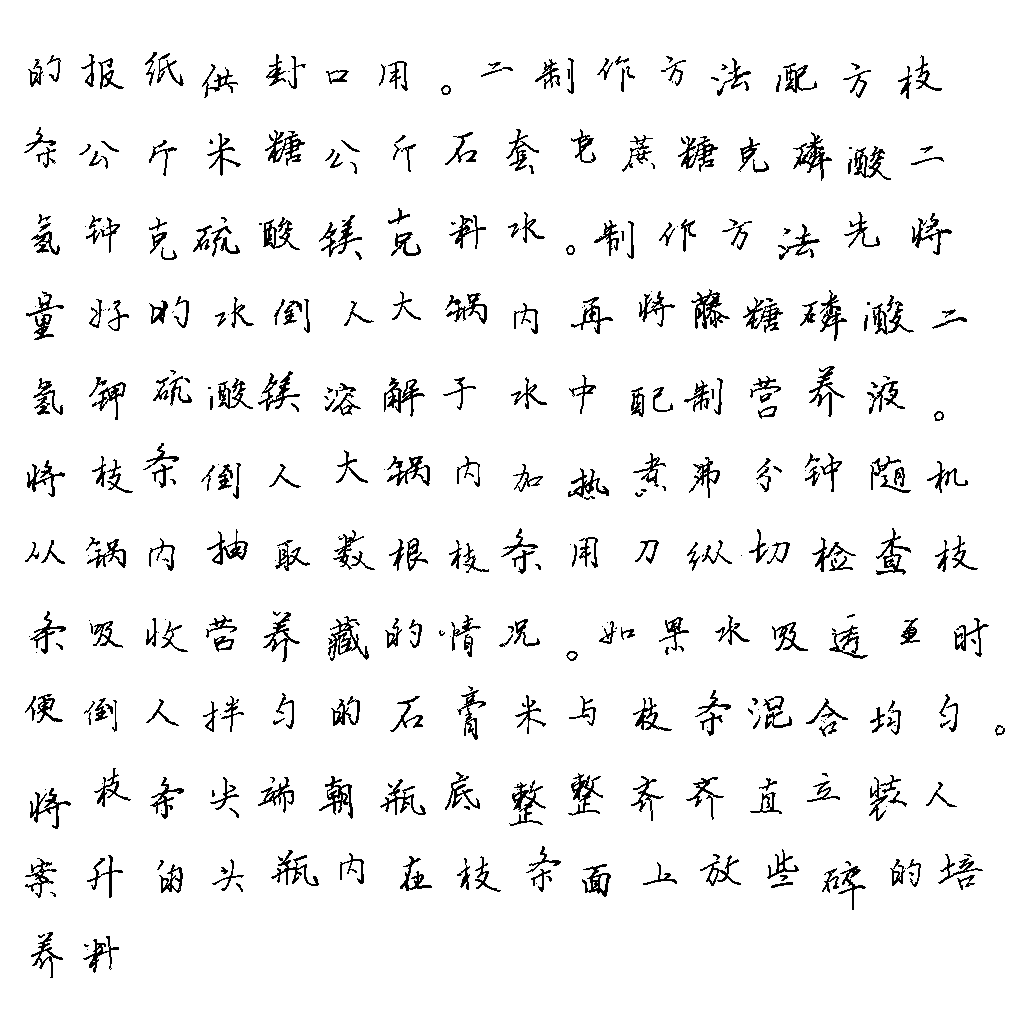 的报纸供封口用。二制作方法配方枝
条公斤米糖公斤石套屯蔗糖克磷酸二
氢钟克硫酸镁克料水。制作方法先将
量好的水倒人大锅内再将藤糖磷酸二
氢钾硫酸镁溶解于水中配制营养液。
将枝条倒人大锅内加热煮沸分钟随机
从锅内抽取数根枝条用刀纵切检查枝
条吸收营养藏的情况。如果水吸透至时
便倒人拌匀的石膏米与枝条混合均匀。
将枝条尖端朝瓶底整整齐齐直立装人
案升的头瓶内在枝条面上放些碎的培
养料